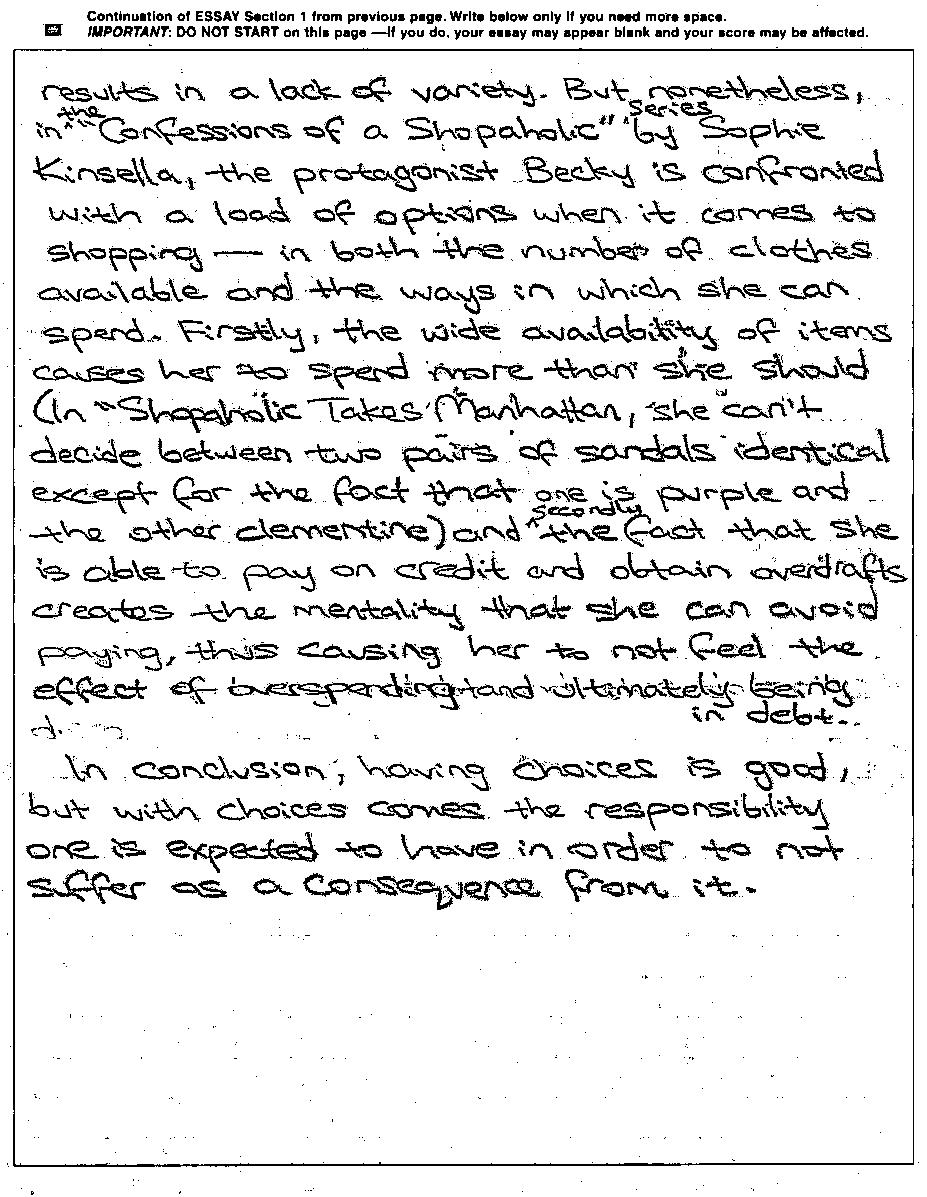 Continuation of ESSAY Section 1 from previous page. Write below only if you need more space.
IMPORTANT: DO NOT START on this page —if you do, your essay may appear blank and your score may be affected.
results in a lack of variety. But nonetheless,
in the "Confessions of a Shopaholic" series by Sophie
Kinsella, the protagonist Becky is confronted
with a load of options when it comes to
shopping — in both the number of clothes
available and the ways in which she can
spend. Firstly, the wide availability of items
causes her to spend more than she should
(In "Shopaholic Takes Manhattan, she can't
decide between two pairs of sandals identical
except for the fact that one is purple and
the other clementine) and secondly the fact that she
is able to pay on credit and obtain overdrafts
creates the mentality that she can avoid
paying, thus causing her to not feel the
effect of overspending and ultimately being
in debt.
In conclusion, having choices is good,
but with choices comes the responsibility
one is expected to have in order to not
suffer as a consequence from it.